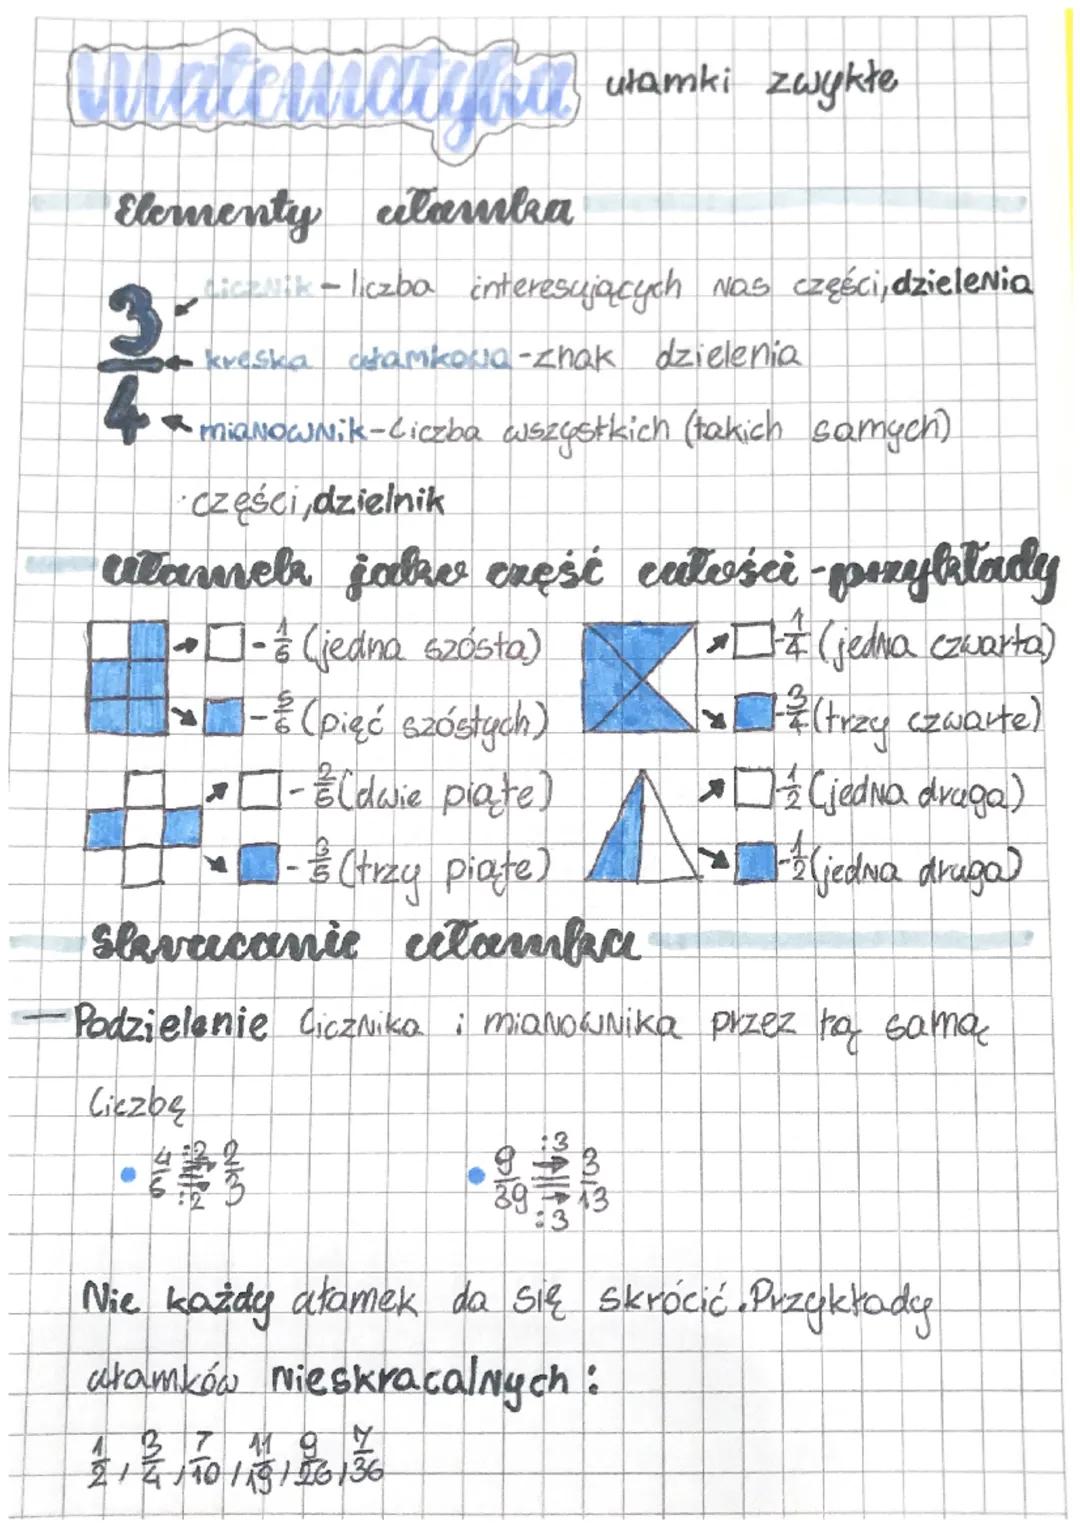 matematyka ułamki zwykłe
Elementy ułamka
3/4
licznik - liczba interesujących nas części, dzielenia
kreska ułamkowa - znak dzielenia
mianownik - liczba wszystkich (takich samych)
części, dzielnik
ułamek jako część całości - przykłady
- 1/6 (jedna szósta)
- 5/6 (pięć szóstych)
- 1/4 (jedna czwarta)
- 3/4 (trzy czwarte)
- 2/5 (dwie piąte)
- 3/5 (trzy piąte)
- 1/2 (jedna druga)
- 1/2 (jedna druga)
Skracanie ułamka
— Podzielenie licznika i mianownika przez tą samą
liczbę
• 4/6 :2 :2 2/3
• 9/39 :3 :3 3/13
Nie każdy ułamek da się skrócić. Przykłady
ułamków nieskracalnych:
1/2, 3/4, 7/10, 11/19, 9/26, 7/36